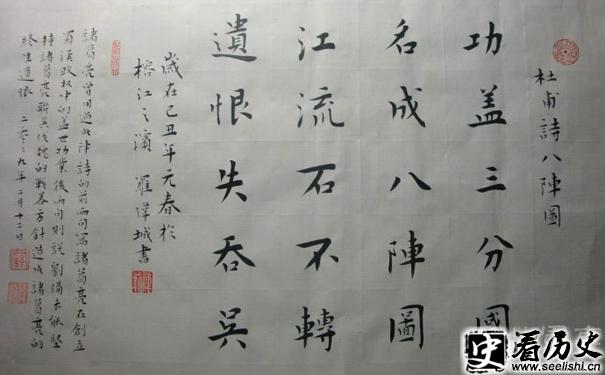 杜甫詩八陣圖
功盖三分國
名成八陣圖
江流石不轉
遺恨失吞吳
歲在己丑年元春於
榕江之濱 羅偉城書
諸葛亮曾用過此陣詩的前兩句寫諸葛亮在創立
蜀漢政权中的盖世功業後兩句則說劉備未能堅
持諸葛亮聯吳伐魏的戰畧方針造成諸葛亮的
終生遺恨 二〇〇九年二月十二日
史 看历史
www.seelishi.cn